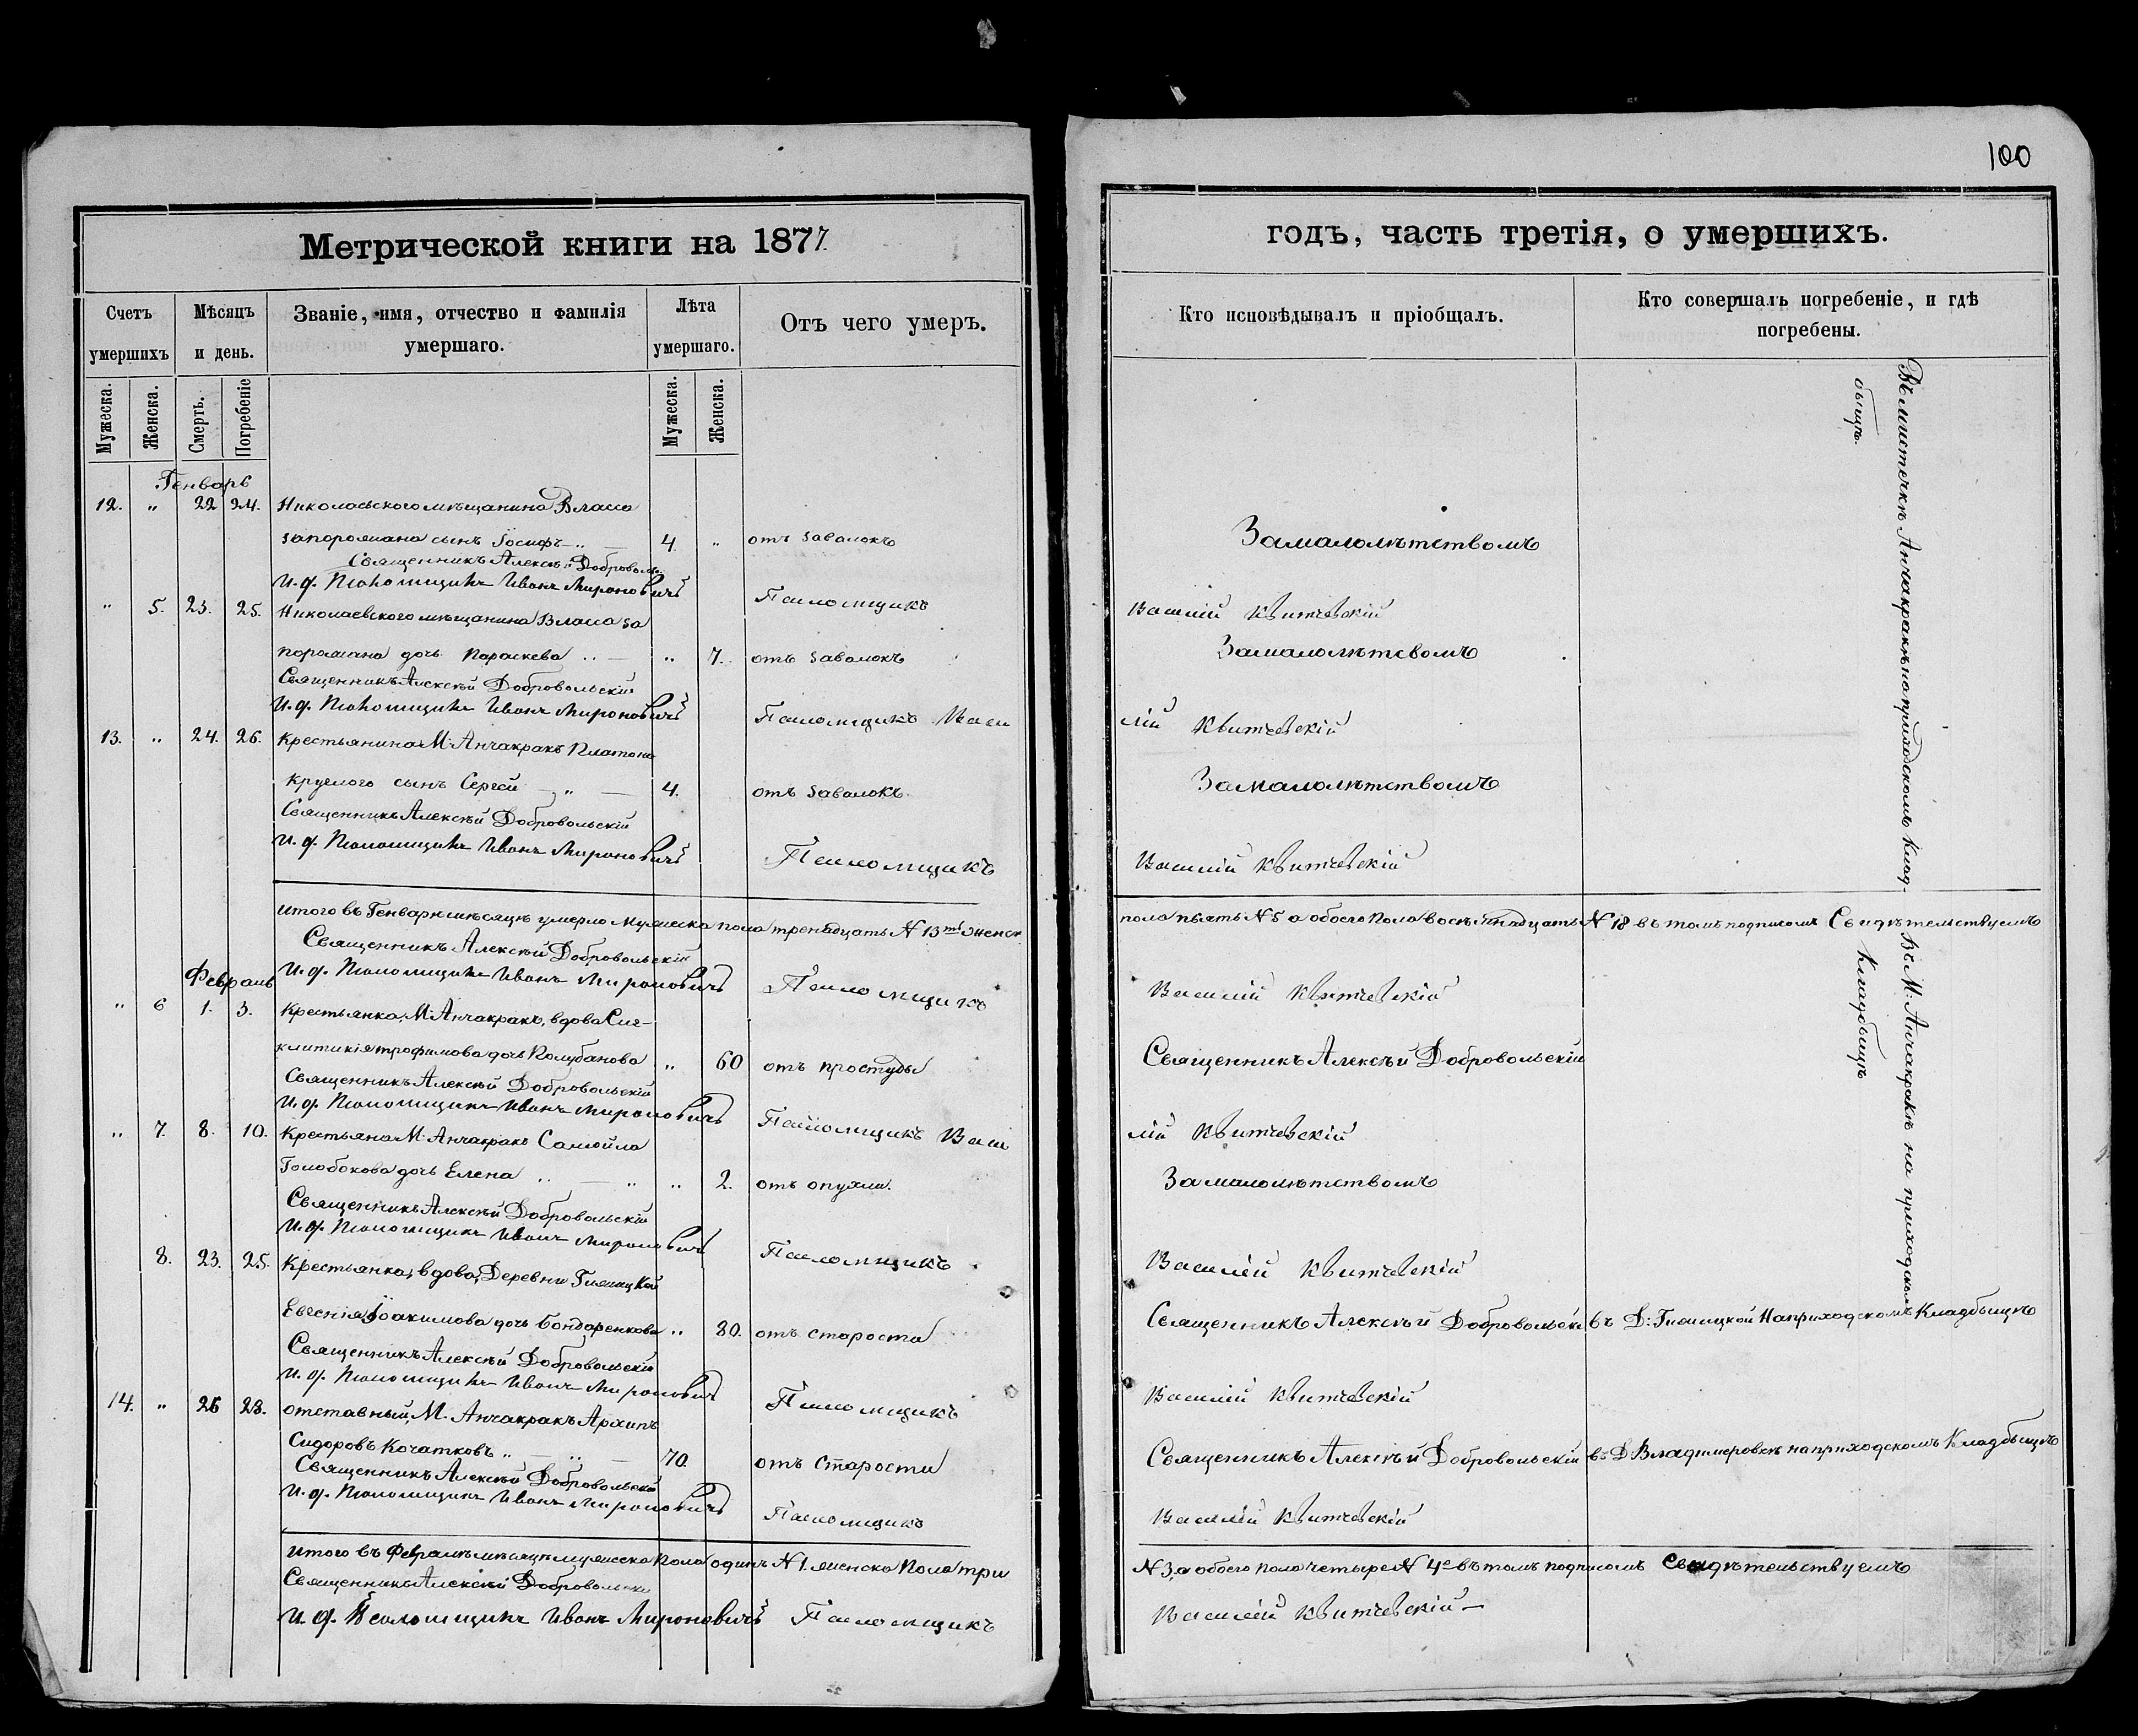 100
Метрической книги на 1877.
годъ, часть третія, о умершихъ.
Счетъ умершихъ
Мѣсяцъ и день.
Званіе, имя, отчество и фамилія умершаго.
Лѣта умершаго.
Отъ чего умеръ.
Кто исповѣдывалъ и пріобщалъ.
Кто совершалъ погребеніе, и гдѣ погребены.
Мужеска.
Женска.
Смерть.
Погребеніе
Мужеска.
Женска.
Генварь
12. " 22 24. Николаевскаго мѣщанина Власа
запорожана сынъ Іосифъ " 4. " отъ завалокъ Замалолѣтствомъ
Священникъ Алексѣй Доброволь
И. ф. Псаломщика Иванъ Мироновичъ Псаломщикъ Василій Квитчевскій
" 5. 23. 25. Николаевского мѣщанина Власа за
порожана дочь Параскева " " 7. отъ завалокъ Замалолѣтсвомъ
Священникъ Алексѣй Добровольскій
И. ф. Псаломщика Иванъ Мироновичъ Псаломщикъ Васи лій Квитчевскій
13. " 24. 26. Крестьянина М. Анчакракъ Платона
Круглого сынъ Сергей " 4. отъ завалокъ. Замалолѣтствомъ
Священникъ Алексѣй Добровольскій
И. ф. Псаломщика Иванъ Мироновичъ Псаломщикъ Василій Квитчевскій
Въ мѣстечкѣ Анчакракѣ на приходскомъ клад
бищѣ.
Итого въ Генварѣ мѣсяцѣ умерло мужеска пола тренадцать № 13 женск пола пять № 5 а обоего пола восемнадцать № 18 въ томъ подписомъ Свидѣтельствуемъ
Священникъ Алексѣй Добровольскій
И. ф. Псаломщика Иванъ Мироновичъ Псаломщикъ Василій Квитчевскій
Февраль
" 6 1. 3. Крестьянка, М. Анчакракъ, вдова Син-
клитикія трофимова дочь Колубанова " 60 отъ простуды Священникъ Алексѣй Добровольскій
Священникъ Алексѣй Добровольскій
И. ф. Псаломщика Иванъ Мироновичъ Псаломщикъ Васи лій Квитчевскій
" 7. 8. 10. Крестьяна М. Анчакракъ Самойла
Голобокова дочь Елена " " " 2. отъ опухли. Замалолѣтствомъ
Священникъ Алексѣй Добровольскій
И. ф. Псаломщика Иванъ Мироновичъ Псаломщикъ Василій Квитчевскій
Въ М. Анчакракѣ на приходскомъ
Кладбищѣ
8. 23. 25. Крестьянка, вдова, Деревни
Евгенія Іоакимова дочь Бондаренкова " 80. отъ старости Священникъ Алексѣй Добровольскій въ Д: На приходскомъ Кладбищѣ
Священникъ Алексѣй Добровольскій
И. ф. Псаломщика Иванъ Мироновичъ Псаломщикъ Василій Квитчевскій
14. " 26 28. отставный, М. Анчакракъ Архипъ
Сидоровъ Кочатковъ " " 70. отъ старости Священникъ Алексѣй Добровольскій въ Д. Владимеровкѣ на приходскомъ Кладбищѣ
Священникъ Алексѣй Добровольскій
И. ф. Псаломщика Иванъ Мироновичъ Псаломщикъ Василій Квитчевскій
Итого въ Февралѣ мѣсяцѣ мужеска пола одинъ № 1. женска пола три № 3, а обоего пола четыре № 4 въ томъ подписомъ Свидѣтельствуемъ
Священникъ Алексѣй Добровольски
И. ф. Псаломщика Иванъ Мироновичъ Псаломщикъ Василій Квитчевскій